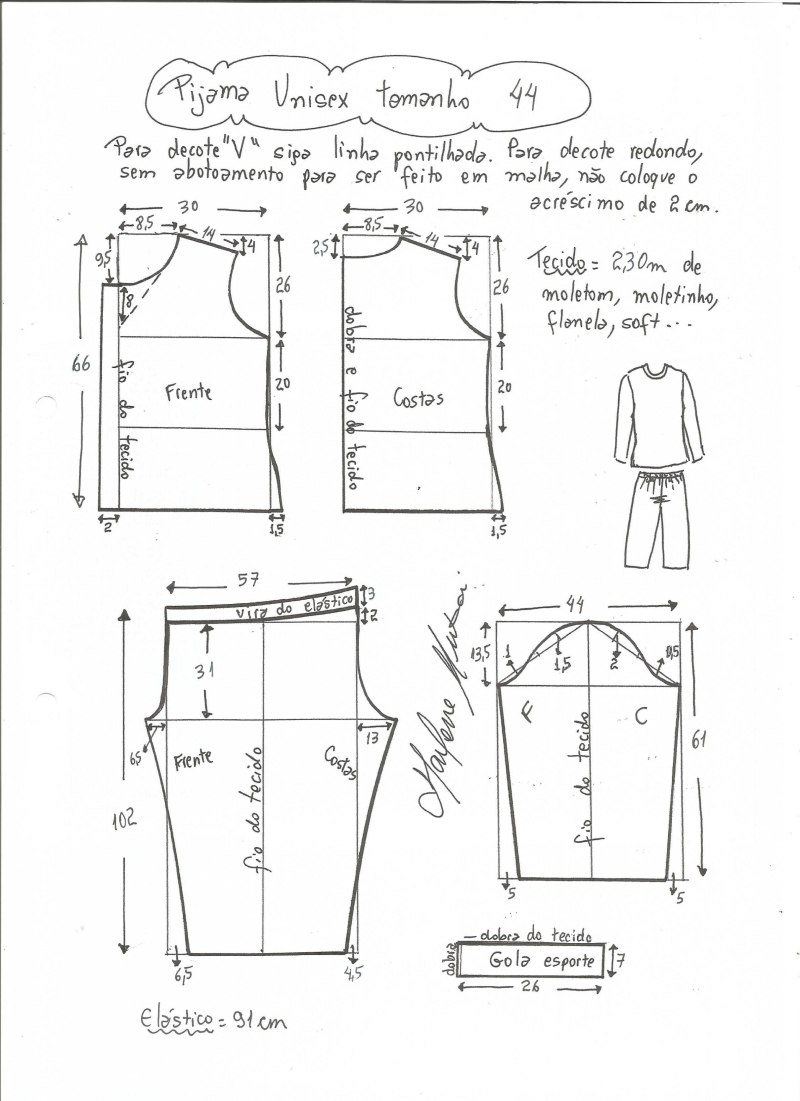 Pijama Unisex tamanho 44
Para decote "V" siga linha pontilhada. Para decote redondo,
sem abotoamento para ser feito em malha, não coloque o
acréscimo de 2 cm.
30
8,5
14
4
9,5
8
26
66
20
fio do tecido
Frente
2
1,5
30
8,5
14
4
2,5
26
20
dobra e fio do tecido
Costas
1,5
Tecido = 2,30m de
moletom, moletinho,
flanela, soft...
57
3
vira do elástico
2
31
6,5
13
Frente
Costas
fio do tecido
102
6,5
4,5
Elástico = 91 cm
44
13,5
1
1,5
2
0,5
F
C
fio do tecido
61
5
5
dobra do tecido
dobra
Gola esporte
7
26